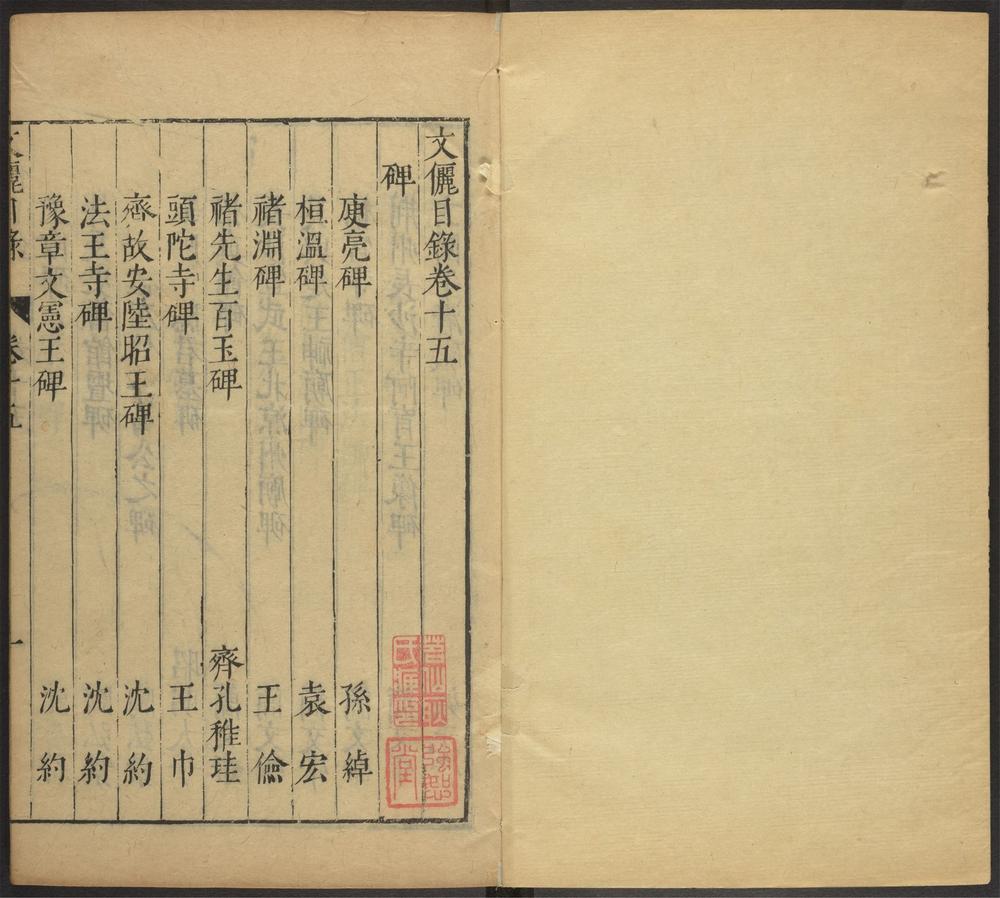 文儷目錄卷十五
碑
庾亮碑 孫綽
桓溫碑 袁宏
禇淵碑 王儉
禇先生百玉碑 齊孔稚珪
頭陀寺碑 王巾
齊故安陸昭王碑 沈約
法王寺碑 沈約
豫章文憲王碑 沈約
文儷目錄 卷十五 一